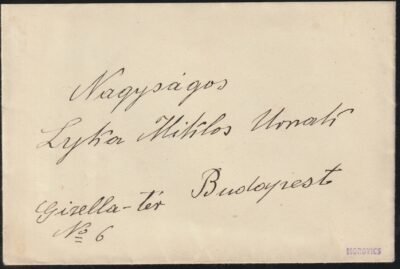 Nagyságos
Lyka Miklos Urnak
Budapest
Gizella-tér
No 6
HOROVICS